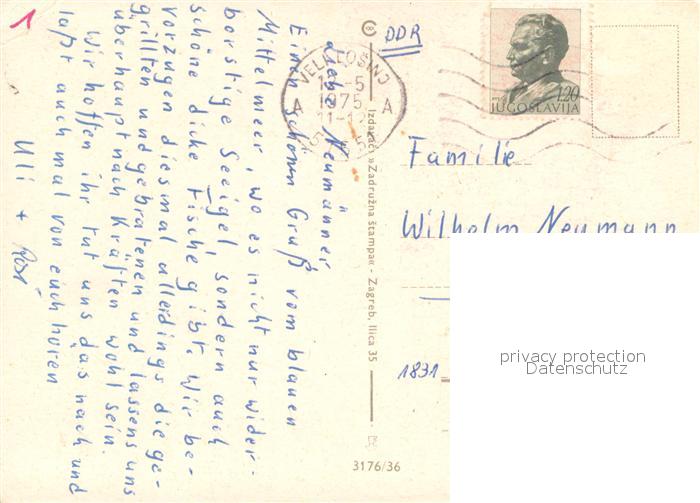 1
Liebe Neumänner
Einen schönen Gruß vom blauen
Mittelmeer, wo es nicht nur wider-
borstige Seeigel, sondern auch
schöne dicke Fische gibt. Wir be-
vorzugen diesmal allerdings die ge-
grillten und gebratenen und lassens uns
überhaupt nach Kräften wohl sein.
Wir hoffen ihr tut uns das nach und
laßt auch mal von euch hören
Uli + Rosi
VELI LOŠINJ
1975
11-12
A A
Izdavač: »Zadružna štampa« - Zagreb, Ilica 35
3176/36
DDR
1.20
JUGOSLAVIJA
Familie
Wilhelm Neumann
1831
privacy protection
Datenschutz